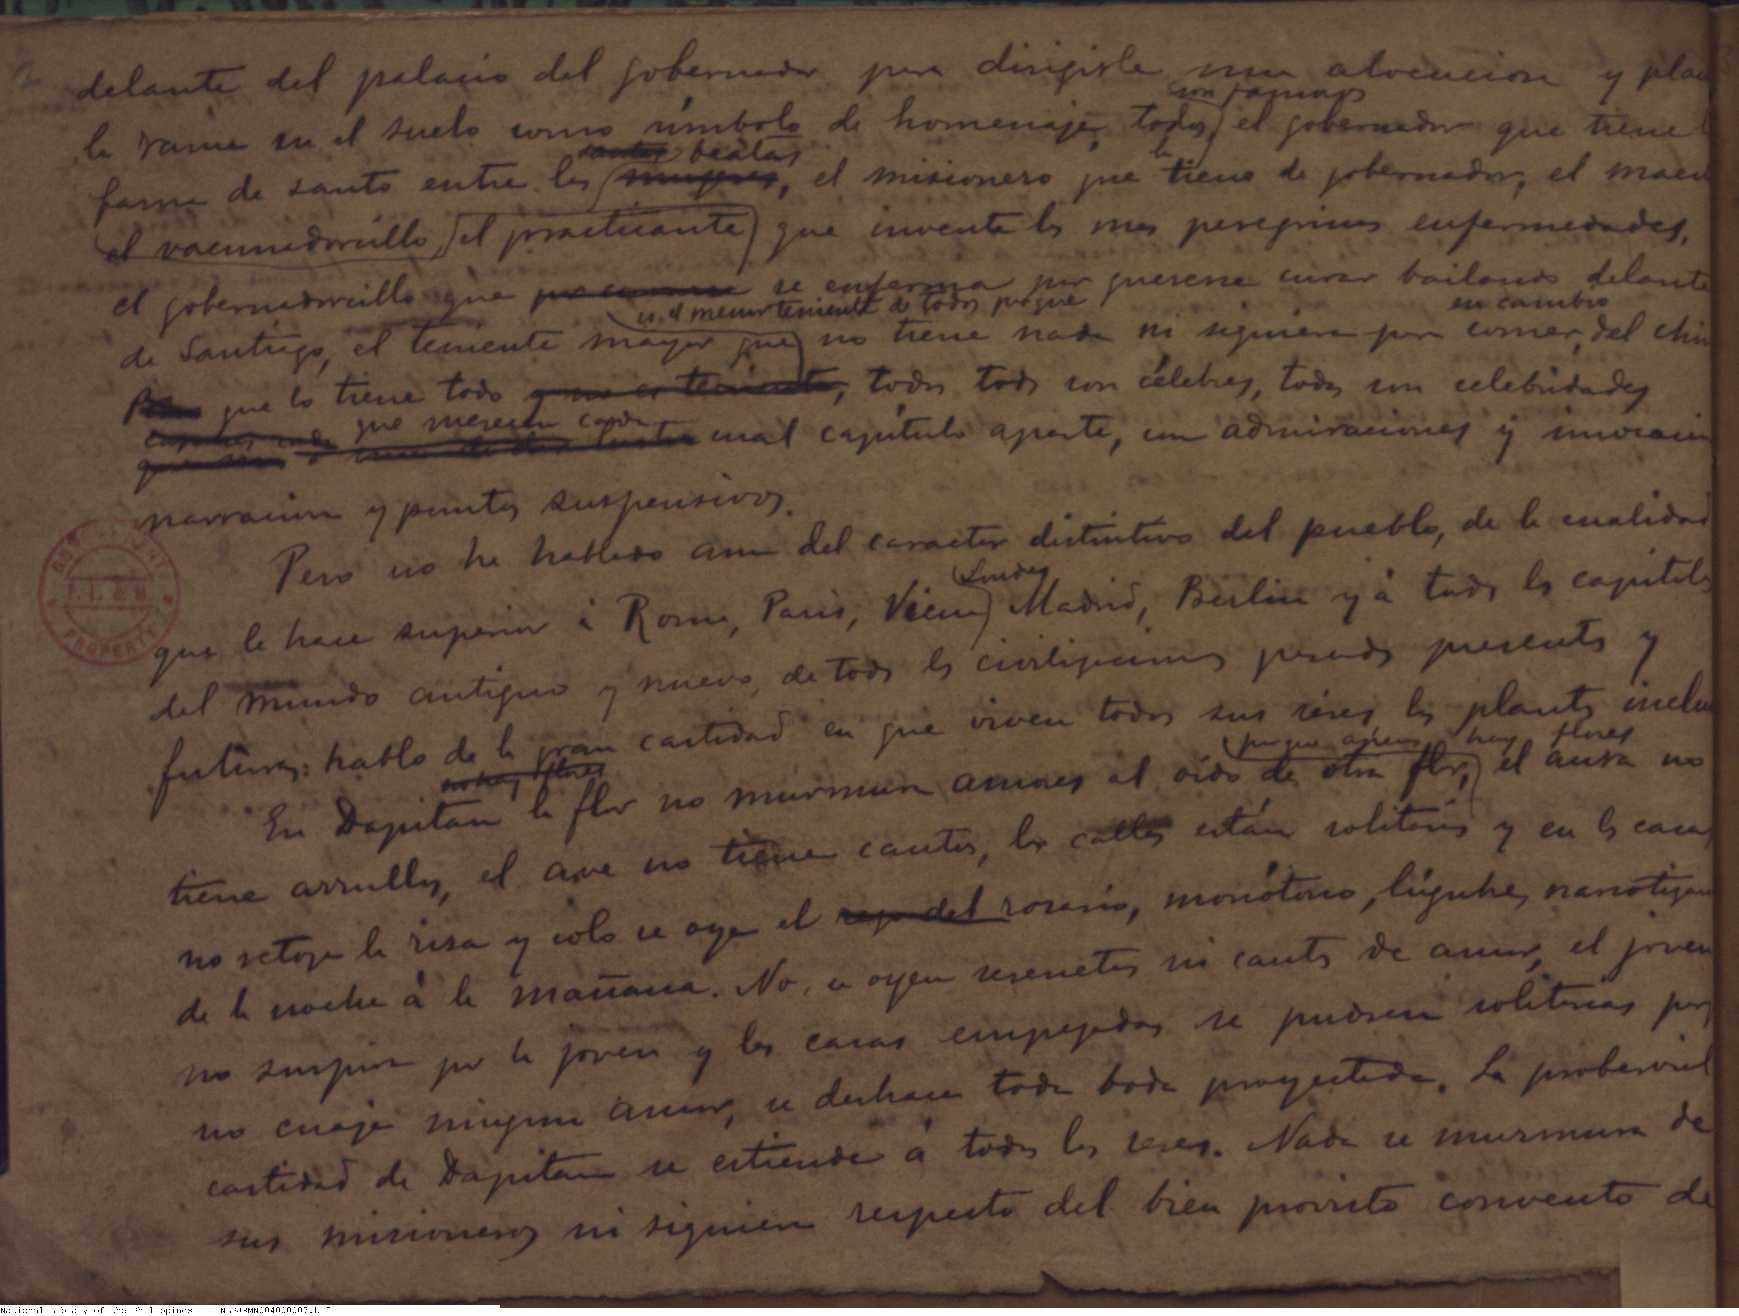 delante del palacio del gobernador para dirigirle una alocucion y
la rama en el suelo como símbolo de homenaje, todos son famosos, el gobernador que tiene
fama de santo entre las beatas, el misionero que la tiene de gobernador, el
el vacunadorcillo, el practicante que inventa las mas peregrinas enfermedades,
el gobernadorcillo que se enferma por quererse curar bailando delante
de Santiago, el teniente mayor que es el menor teniente de todos porque no tiene nada ni siquiera para comer, en cambio del
que lo tiene todo, todos todos son célebres, todos son celebridades
que merecen cada cual capítulo aparte, con admiraciones y
narracion y puntos suspensivos.
Pero no he hablado aun del caracter distintivo del pueblo, de la cualidad
que le hace superior á Roma, Paris, Viena, Londres, Madrid, Berlin y á todas las capitales
del mundo antiguo y nuevo, de todas las civilizaciones pasadas presentes y
futuras: hablo de la gran castidad en que viven todos sus séres, las plantas
En Dapitan la flor no murmura amores al oido de otra flor, porque apenas hay flores, el aura no
tiene arrullos, el ave no tiene cantos, las calles están solitarias y en las casas
no retoza la risa y solo se oye el rosario, monótono, lúgubre,
de la noche á la mañana. No se oyen serenatas ni cantos de amor, el joven
no suspira por la joven y las casas empezadas se pudren solitarias
no cuaja ningun amor, se deshace toda boda proyectada. La proberbial
castidad de Dapitan se estiende á todos los seres. Nada se murmura de
sus misioneros ni siquiera respecto del bien provisto convento de